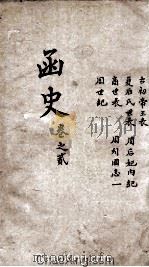 古初帝王表
夏后氏世表 周后妃内紀
商世表 周列國志一
周世紀
函史 卷之貳